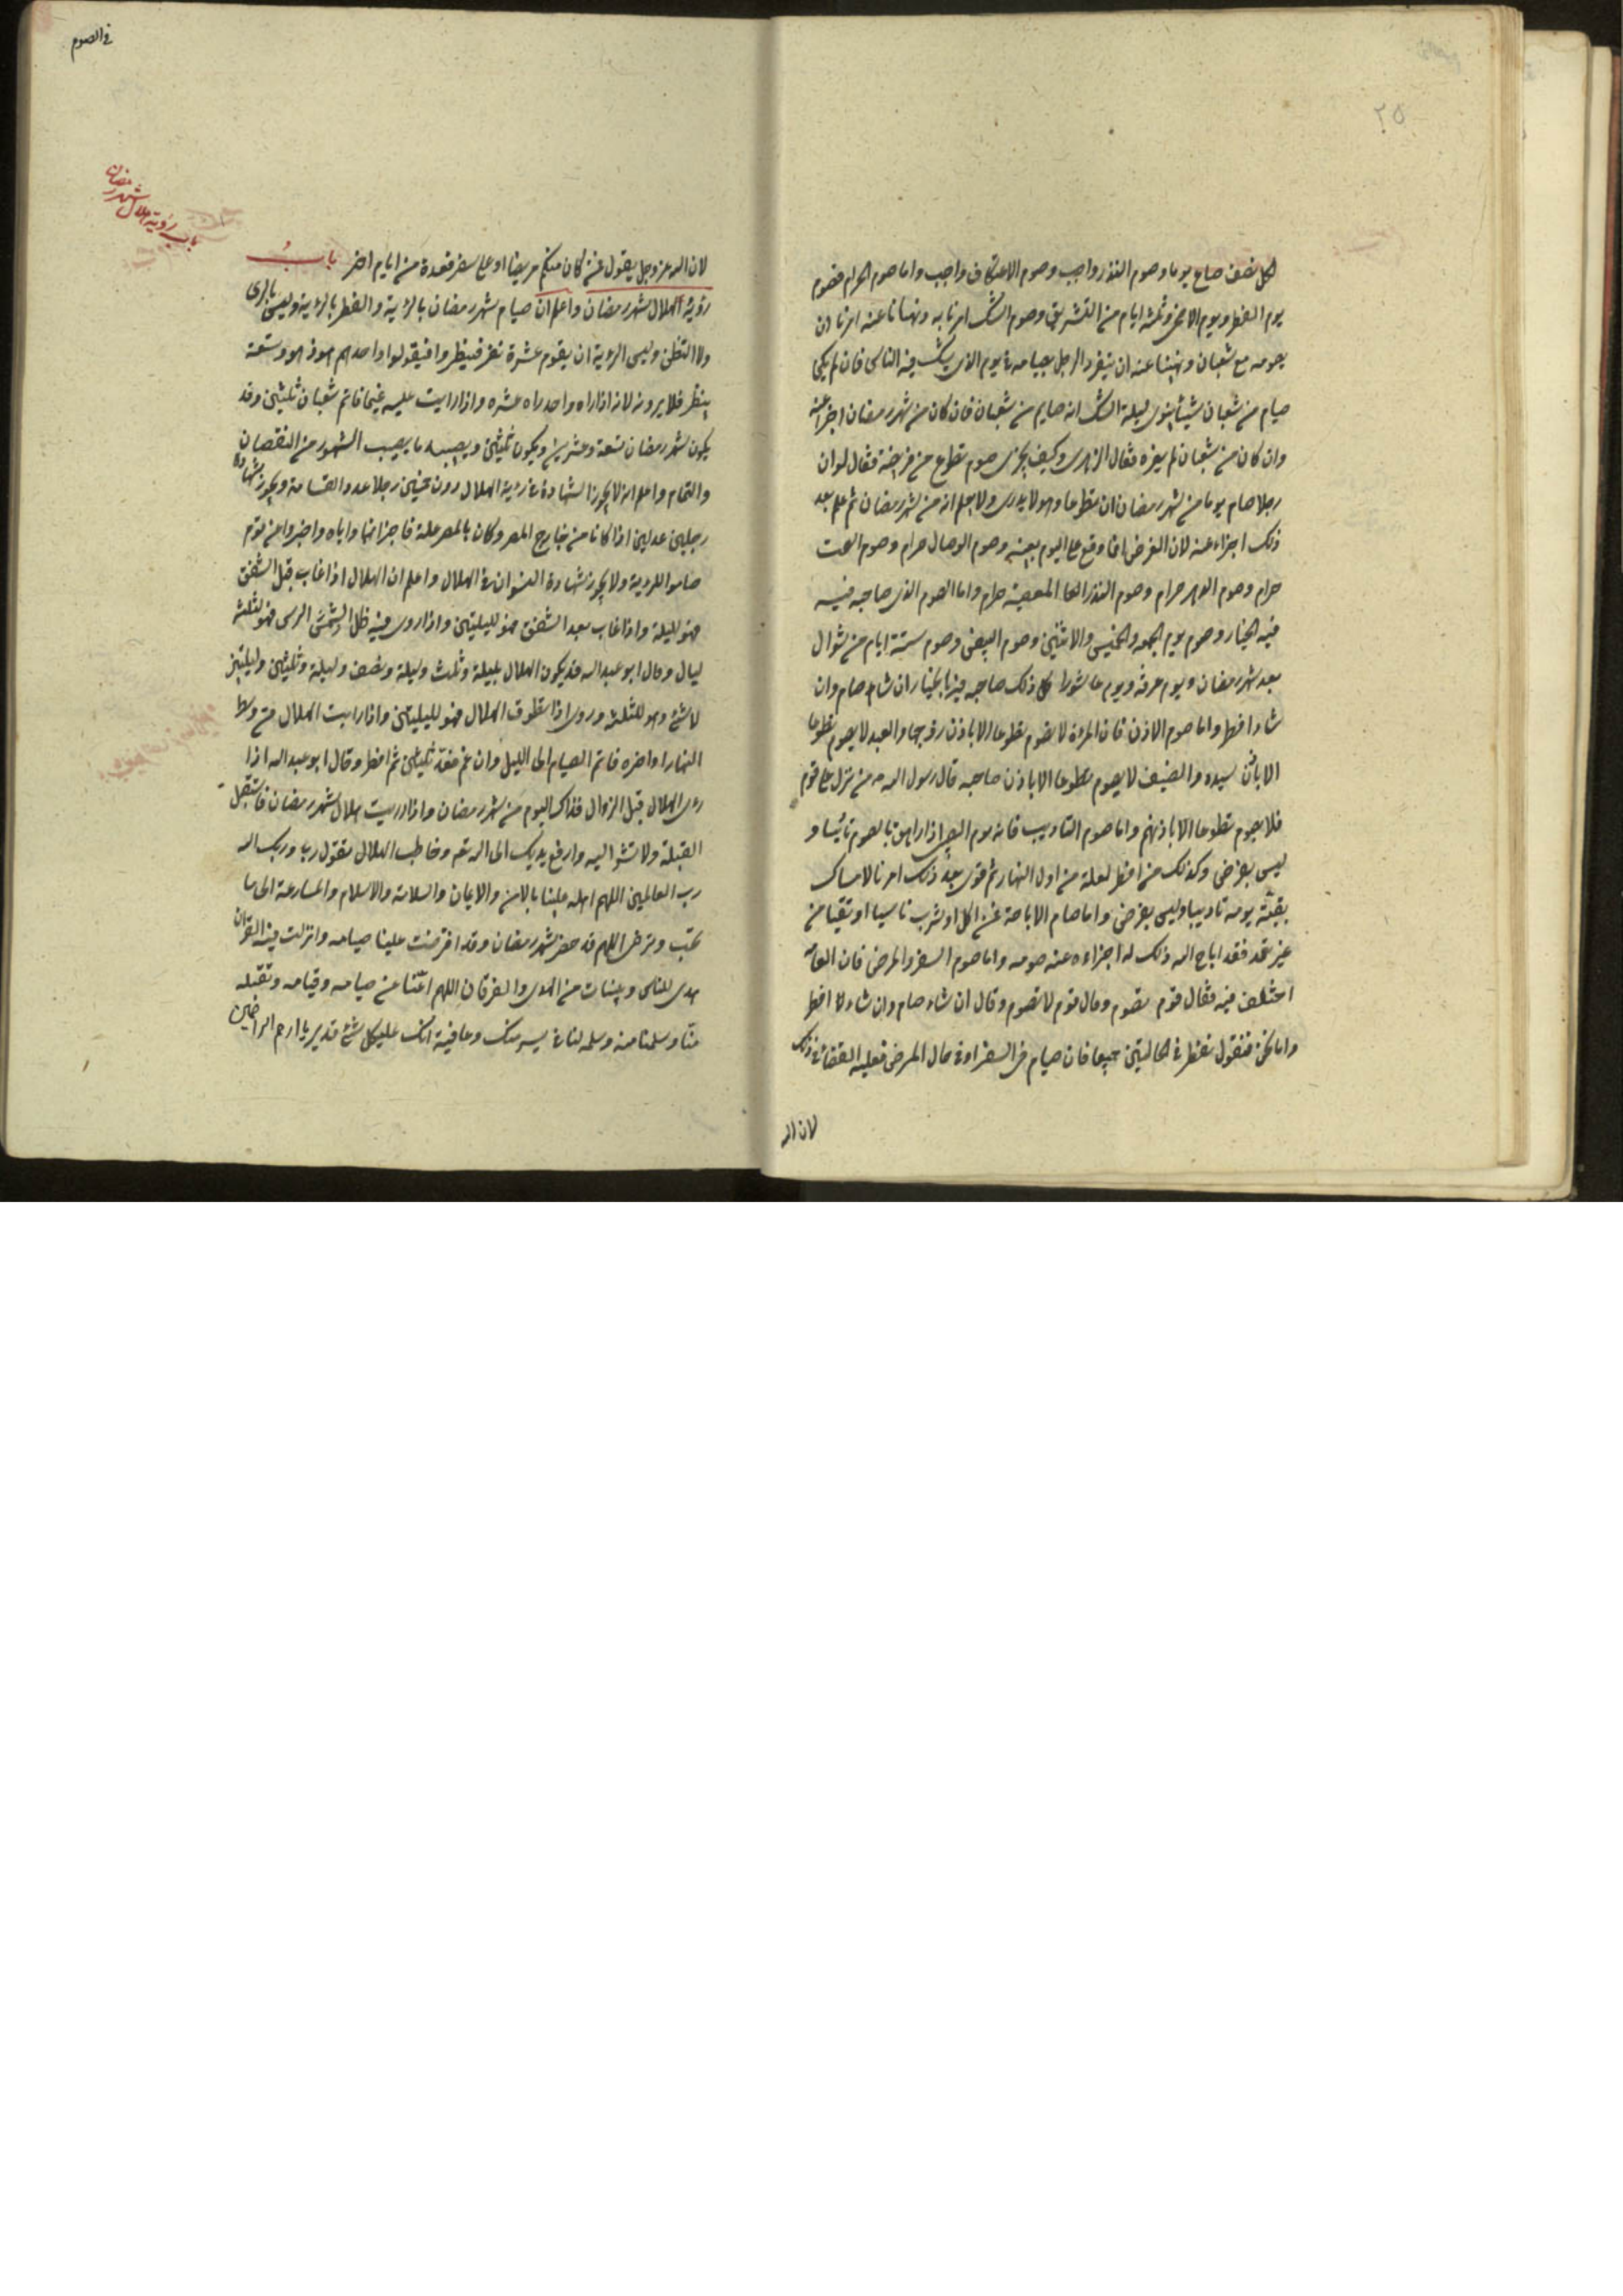 ٢٥
لكل نصف صاع يوما وصوم النذر واجب وصوم الاعتكاف واجب واما صوم الحرام فصوم
يوم الفطر ويوم الاضحى وثلثة ايام من التشريق وصوم الشك امرنا به ونهانا عنه امرنا ان
يصومه مع شعبان ونهينا عنه ان يتفرد الرجل بصيامه في يوم الذي يشك فيه الناس فان لم يكن
صيام من شعبان شيئا ينوى ليلة الشك انه صايم من شعبان فان كان من شهر رمضان اجزا عنه
وان كان من شعبان لم يضره فقال الزهرى وكيف يجزى صوم تطوع من فريضة فقال لو ان
رجلا صام يوما من شهر رمضان ان تطوعا وهو لا يدرى ولا يعلم انه من شهر رمضان ثم علم بعد
ذلك اجزاء عنه لان الفرض انما وقع على اليوم بعينه وصوم الوصال حرام وصوم الصمت
حرام وصوم الدهر حرام وصوم النذر المعصية حرام واما الصوم الذى صاحبه فيه
فيه الخيار وصوم يوم الجمعه والخميس والاثنين وصوم البيض وصوم ستة ايام من شوال
بعد شهر رمضان ويوم عرفه ويوم عاشورا كل ذلك صاحبه فيه بالخيار ان شاء صام وان
شاء افطر واما صوم الاذن فان المرءة لا تصوم تطوعا الا باذن زوجها والعبد لا يصوم تطوعا
الا باذن سيده والضيف لا يصوم تطوعا الا باذن صاحبه قال رسول الله من نزل على قوم
فلا يصوم تطوعا الا باذنهم واما صوم التاديب فانه يوم الصبى اذا راهق بالصوم تاديبا و
ليس بفرض وكذلك من افطر لعلة من اول النهار ثم قوى بعد ذلك امر بالامساك
بقية يومه تاديبا وليس بفرض واما صام الاباحة فمن اكل او شرب ناسيا او تقيا من
غير تعمد فقد اباح الله ذلك له اجزاءه عنه صومه واما صوم السفر والمرض فان العامة
اختلف فيه فقال قوم تصوم وقال قوم لا تصوم وقال ان شاء صام وان شاء افطر
واما نحن فنقول تفطر في الحالتين جميعا فان صيام في السفر او في حال المرض فعليه القضا في ذلك
لان الله
في الصوم
باب رؤية هلال شهر رمضان
لان الله عز وجل يقول فمن كان منكم مريضا او على سفر فعدة من ايام اخر باب
رؤية الهلال شهر رمضان واعلم ان صيام شهر رمضان بالرؤية والفطر بالرؤية وليس بالراى
ولا التظنى وليس الرؤية ان يقوم عشرة نفر فينظروا فيقولوا واحدهم هو ذا هو وتسعة
ينظر فلا يرونه لانه اذا راه واحد راه عشره واذا رايت عليه غيما فاتم شعبان ثلثين وقد
يكون شهر رمضان تسعة وعشرين ويكون ثلثين ويصيبه ما يصيب الشهور من النقصان
والتمام واعلم انه لا يجوز الشهادة في رؤية الهلال دون خمسين رجلا عدد القسامة ويجوز شهادة
رجلين عدلين اذا كانا من خارج المصر وكان بالمصر علة فاخبرا انهما راياه واخبروا عن قوم
صاموا للرؤية ولا يجوز شهادة النسوان في الهلال واعلم ان الهلال اذا غاب قبل الشفق
فهو لليلة واذا غاب بعد الشفق فهو لليلتين واذا روى فيه ظل الشمس الراس فهو لثلثة
ليال وقال ابو عبد الله قد يكون الهلال بليلة وثلث وليلة ونصف وليلة وثلثين ولليلتين
لا شئ وهو لثلثة وروى اذا تطوق الهلال فهو لليلتين واذا رايت الهلال من وسط
النهار او اخره فاتم الصيام الى الليل وان غم فعد ثلثين ثم افطر وقال ابو عبد الله اذا
رءى الهلال قبل الزوال فذلك اليوم من شهر رمضان واذا رايت هلال شهر رمضان فاستقبل
القبلة ولا تشر اليه وارفع يديك الى الله تع وخاطب الهلال تقول ربى وربك الله
رب العالمين اللهم اهله علينا بالامن والايمان والسلامة والاسلام والمسارعة الى ما
تحب وترضى اللهم قد حضر شهر رمضان وقد افترضت علينا صيامه وانزلت فيه القران
هدى للناس وبينات من الهدى والفرقان اللهم اعنا عن صيامه وقيامه وتقبله
منا وسلمنا منه وسلمه لنا في يسر منك وعافية انك على كل شئ قدير يا ارحم الراحمين